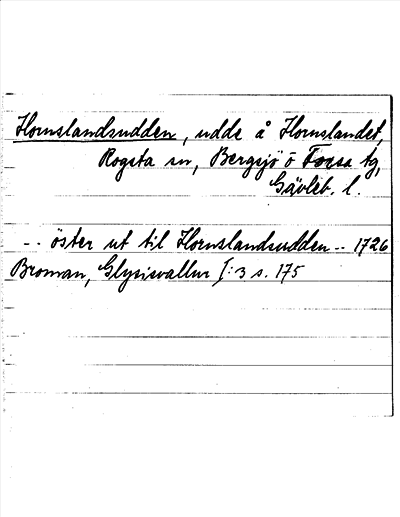 Hornslandsudden, udde å Hornslandet,
Rogsta sn, Bergsjö o Forsa tg,
Gävleb. l.
-- öster ut til Hornslandsudden -- 1726
Broman, Glysisvallur I: 3 s. 175